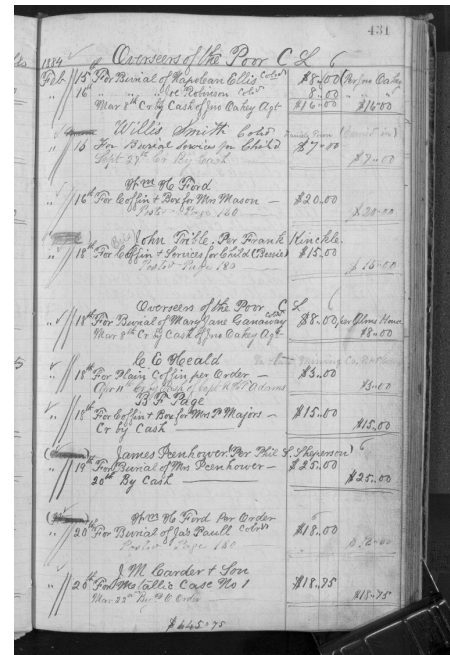 431
1884 Overseers of the Poor C L 6
Feb 15 For Burial of Napolean Ellis Cold $8.00 (Per Jno Oakey
" 16 " " " Joe Robinson Cold 8.00 " " "
Mar 8th Cr by Cash of Jno Oakey Agt $16.00 $16.00
Willis Smith Cold
" 16 For Burial Services for Child $7.00
Sept 27th Cr By Cash $7.00
Wm H Ford
" 16th For Coffin & Box for Mrs Mason — $20.00
Posted - Page 160 — $20.00
John Trible. Per Frank Kinckle.
" 18th For Coffin & Services for Child (Bessie) $15.00
Posted - Page 180 $15.00
Overseers of the Poor C L 6
" 18th For Burial of Mary Jane Ganaway Cold $8.00 per Alms House
Mar 8th Cr by Cash of Jno Oakey Agt $8.00
C C Heald
" 18th For Plain Coffin per Order — $3.00
Apr 11th Cr by Cash of Capt Adams $3.00
B F Page
" 18th For Coffin & Box for Mrs P Majors — $15.00
Cr by Cash $15.00
James Peenhower (Per Phil S. Sheperson) 6
" 19th For Burial of Mrs Peenhower — $25.00
20th By Cash $25.00
Wm H Ford Per Order 6
" 20th For Burial of Jas Paull Cold $18.00
Posted - Page 160
J M Carder & Son
" 20th For Metallic Case No 1 $18.75
Mar 22nd By P O Order $18.75
$645.75